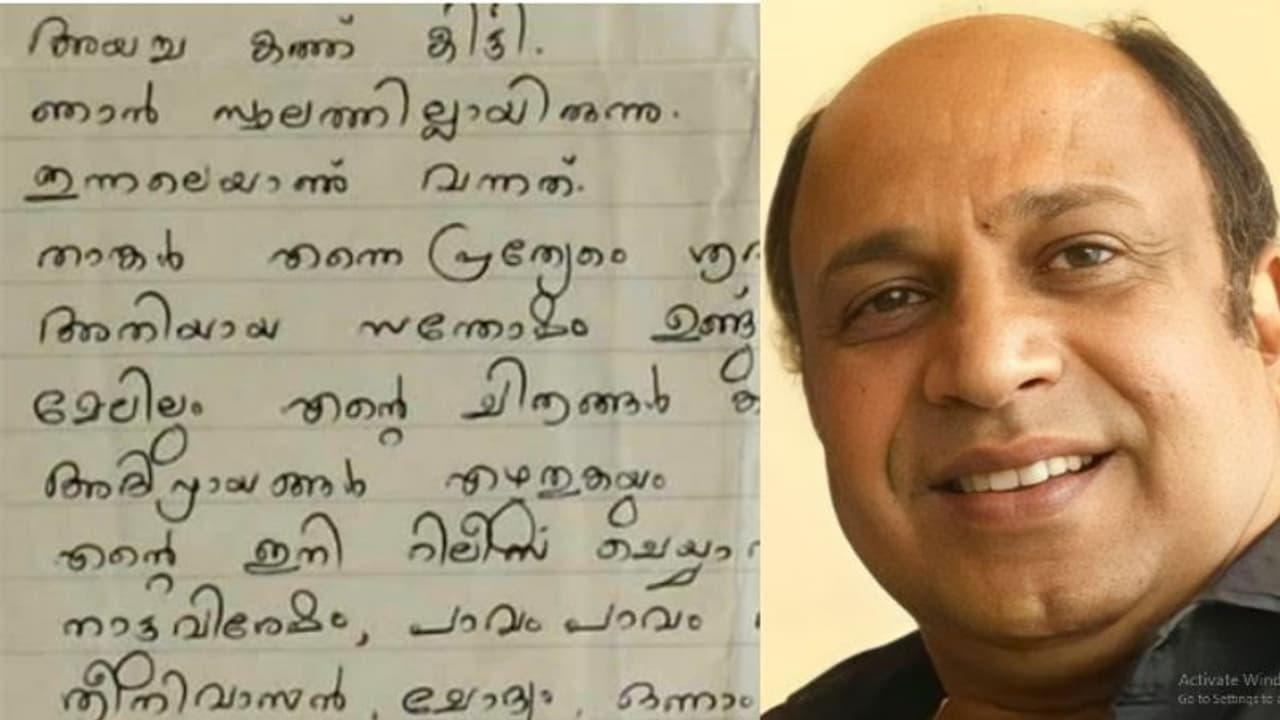 അയച്ച കത്ത് കിട്ടി.
ഞാൻ സ്ഥലത്തില്ലായിരുന്നു.
ഇന്നലെയാണ് വന്നത്.
താങ്കൾ എന്നെ പ്രത്യേകം
അതിയായ സന്തോഷം ഉണ്ട്
മേലിലും എന്റെ ചിത്രങ്ങൾ
അഭിപ്രായങ്ങൾ എഴുതുകയും
എന്റെ ഇനി റിലീസ് ചെയ്യാ
നാട്ടുവിശേഷം, പാവം പാവം
ശ്രീനിവാസൻ, ചോദ്യം, ഒന്നാം
Activate Wind
Go to Settings to